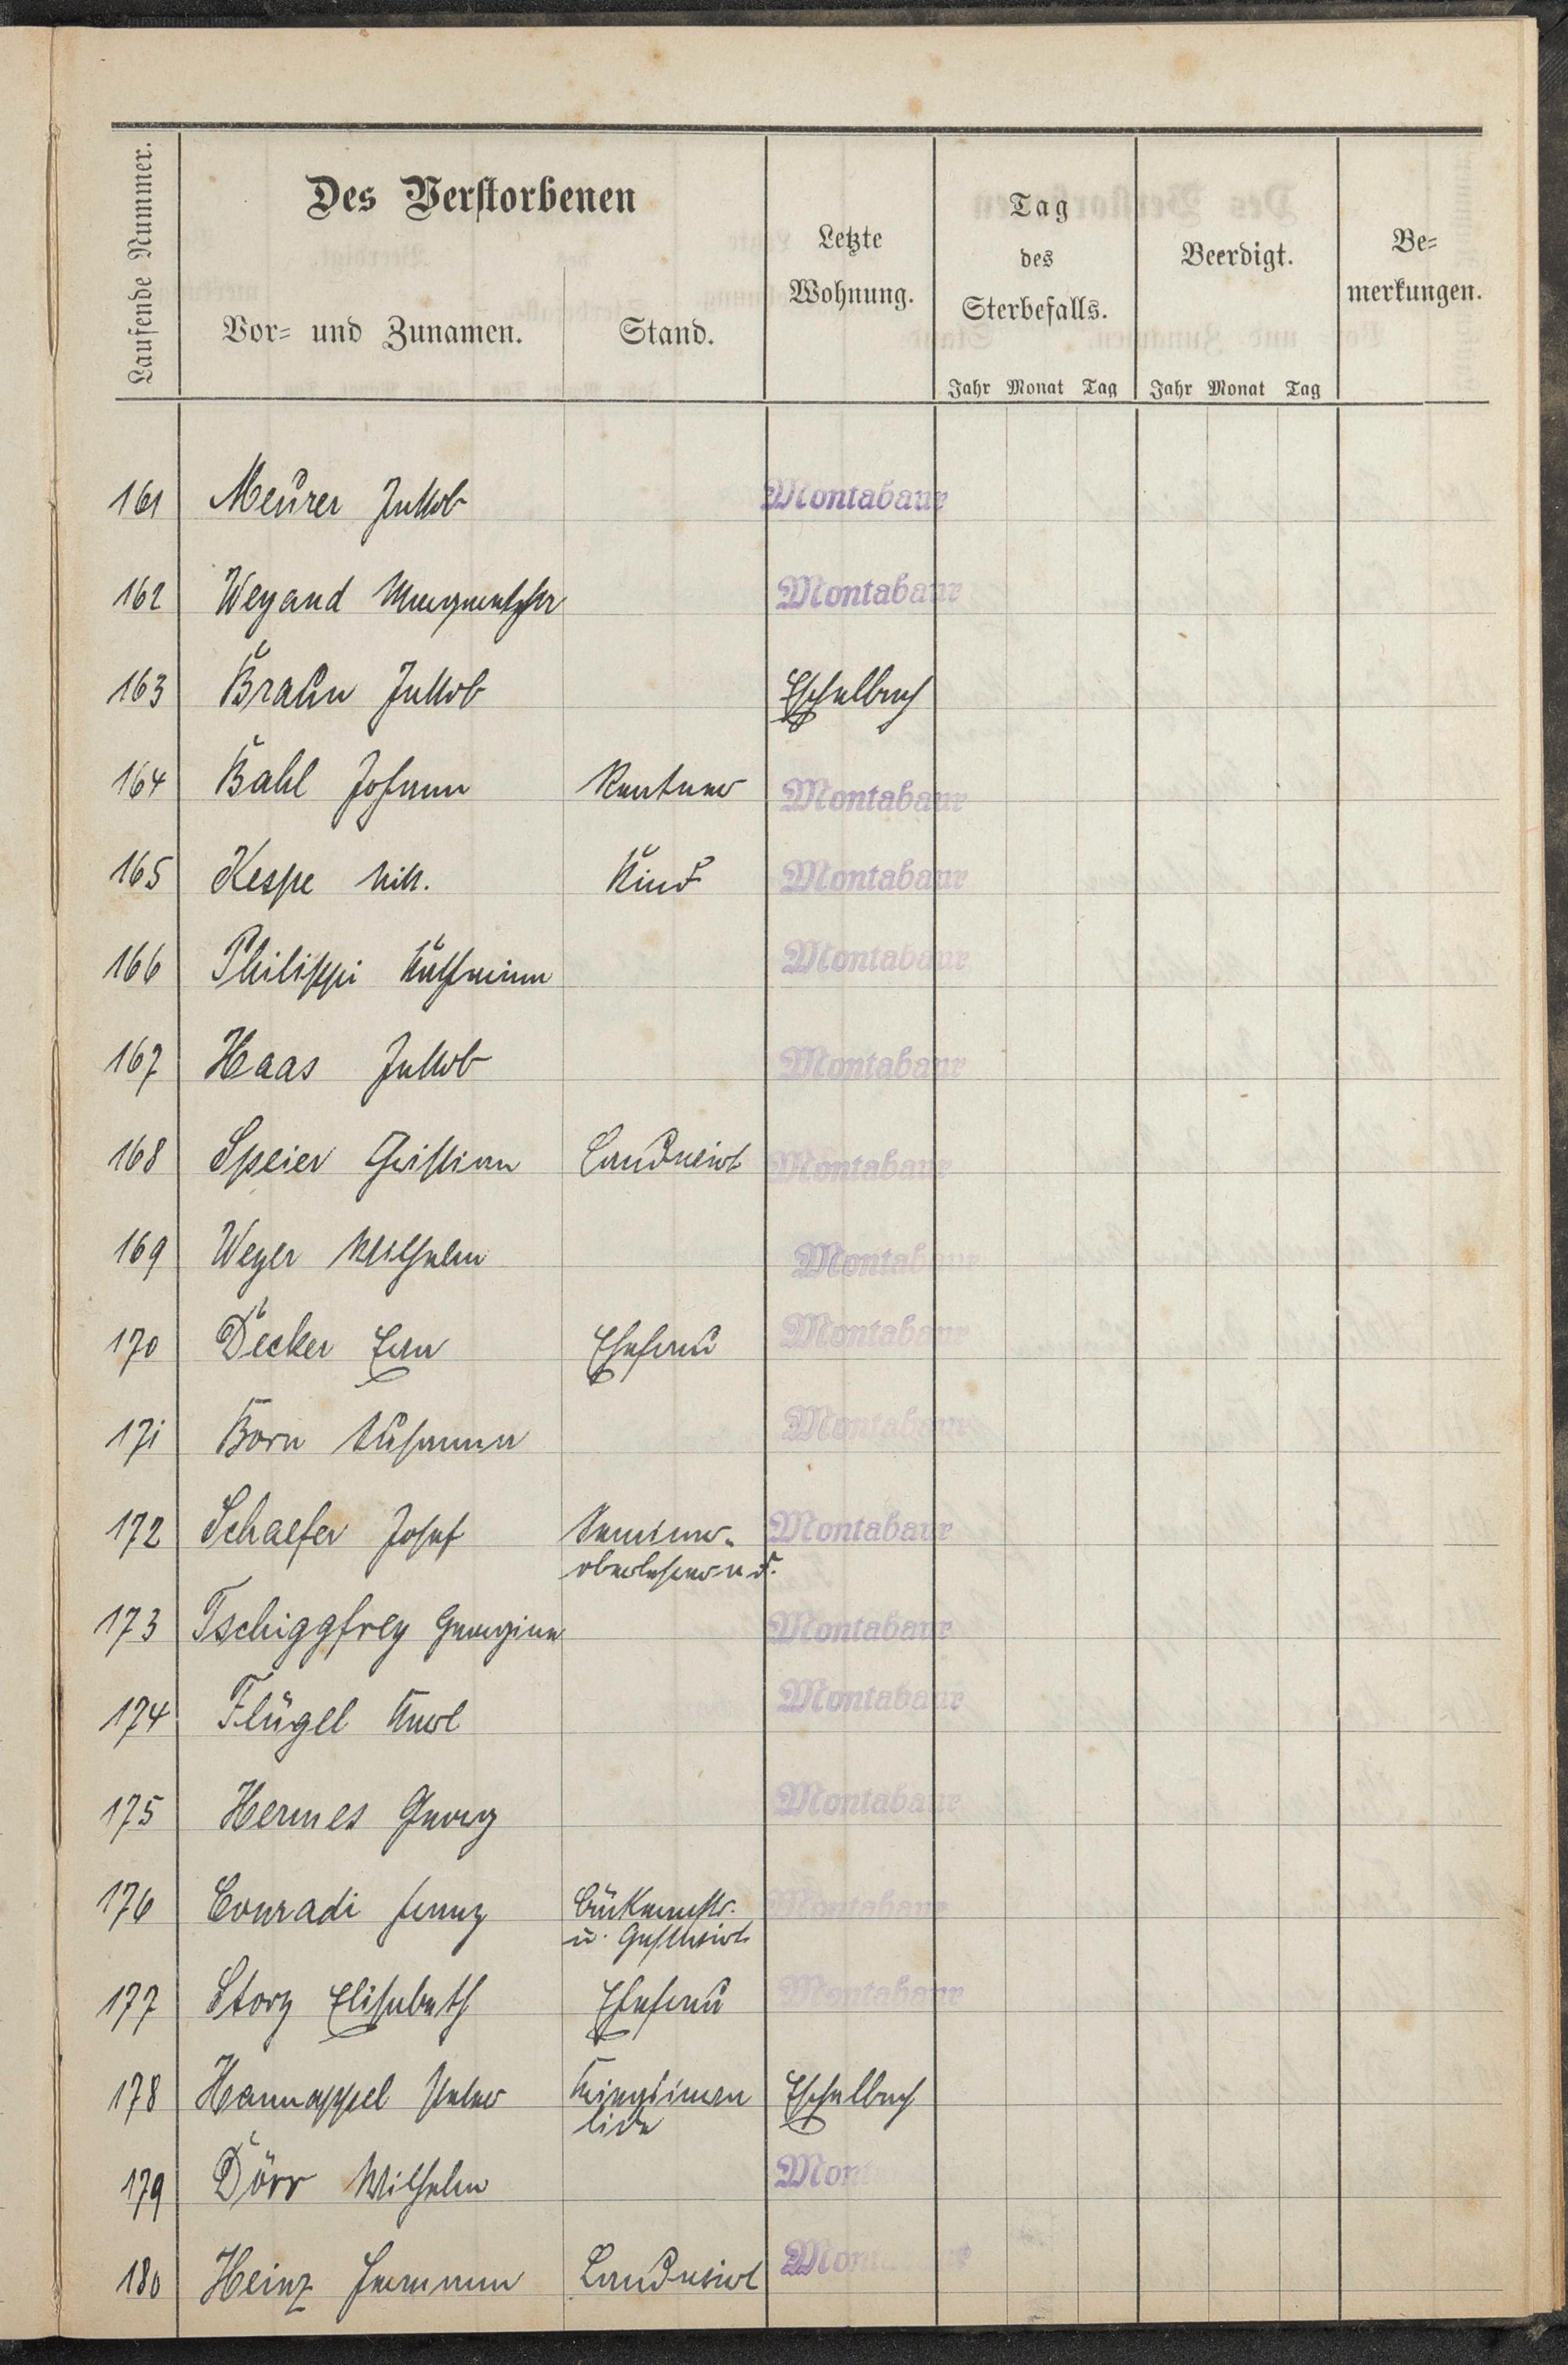 Laufende Nummer.
Des Verstorbenen
Vor- und Zunamen.
Stand.
Letzte
Wohnung.
Tag
des
Sterbefalls.
Jahr Monat Tag
Beerdigt.
Jahr Monat Tag
Be-
merkungen.
161 Meurer Jakob Montabaur
162 Weyand Montabaur
163 Braun Jakob Eschelbach
164 Bahl Johann Rentner Montabaur
165 Kespe Nik. Kind Montabaur
166 Philippi Katharina Montabaur
167 Haas Jakob Montabaur
168 Speier Christian Landwirt Montabaur
169 Weyer Wilhelm Montabaur
170 Decker Eva Ehefrau Montabaur
171 Born Susanna Montabaur
172 Schaefer Josef Seminar- Montabaur
oberlehrer a. d.
173 Tschiggfrey Georgine Montabaur
174 Flügel Karl Montabaur
175 Hermes Georg Montabaur
176 Conradi Franz Bäckermstr. Montabaur
u. Gastwirt
177 Storz Elisabeth Ehefrau Montabaur
178 Hannappel Peter Kriegsinva Eschelbach
lide
179 Dörr Wilhelm Mont
180 Heinz Hermann Landwirt Montabaur